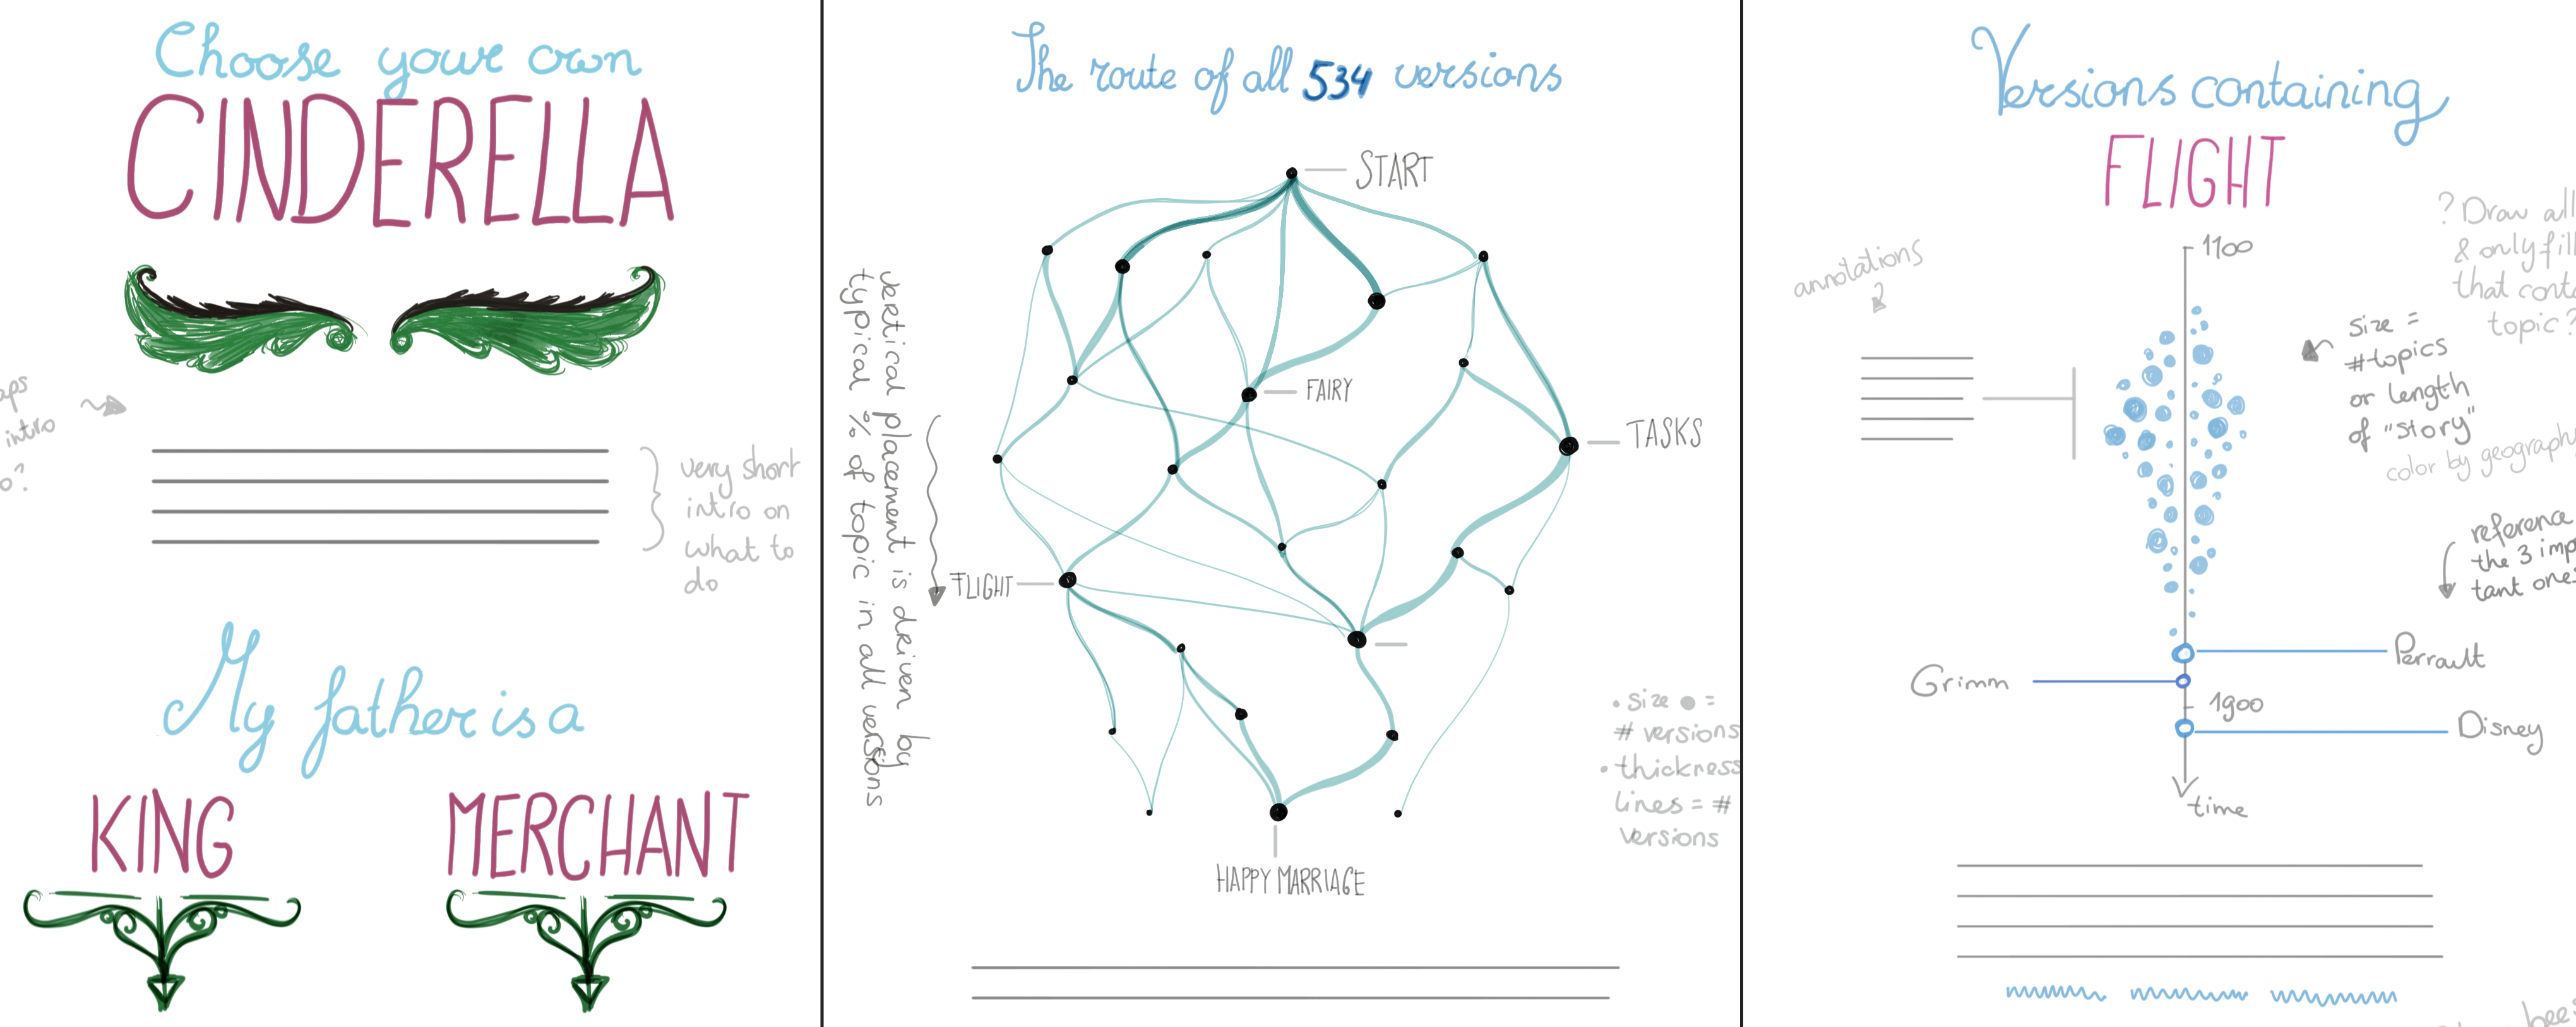 Choose your own
CINDERELLA
intro
?
very short
intro on
what to
do
My father is a
KING
MERCHANT
The route of all 534 versions
START
FAIRY
TASKS
FLIGHT
HAPPY MARRIAGE
vertical placement is driven by
typical % of topic in all versions
• size ● =
# versions
• thickness
lines = #
versions
Versions containing
FLIGHT
1100
annotations
? Draw all
& only fill
that
topic?
size =
#topics
or length
of "story"
color by geography
the 3
Perrault
Grimm
1900
Disney
time